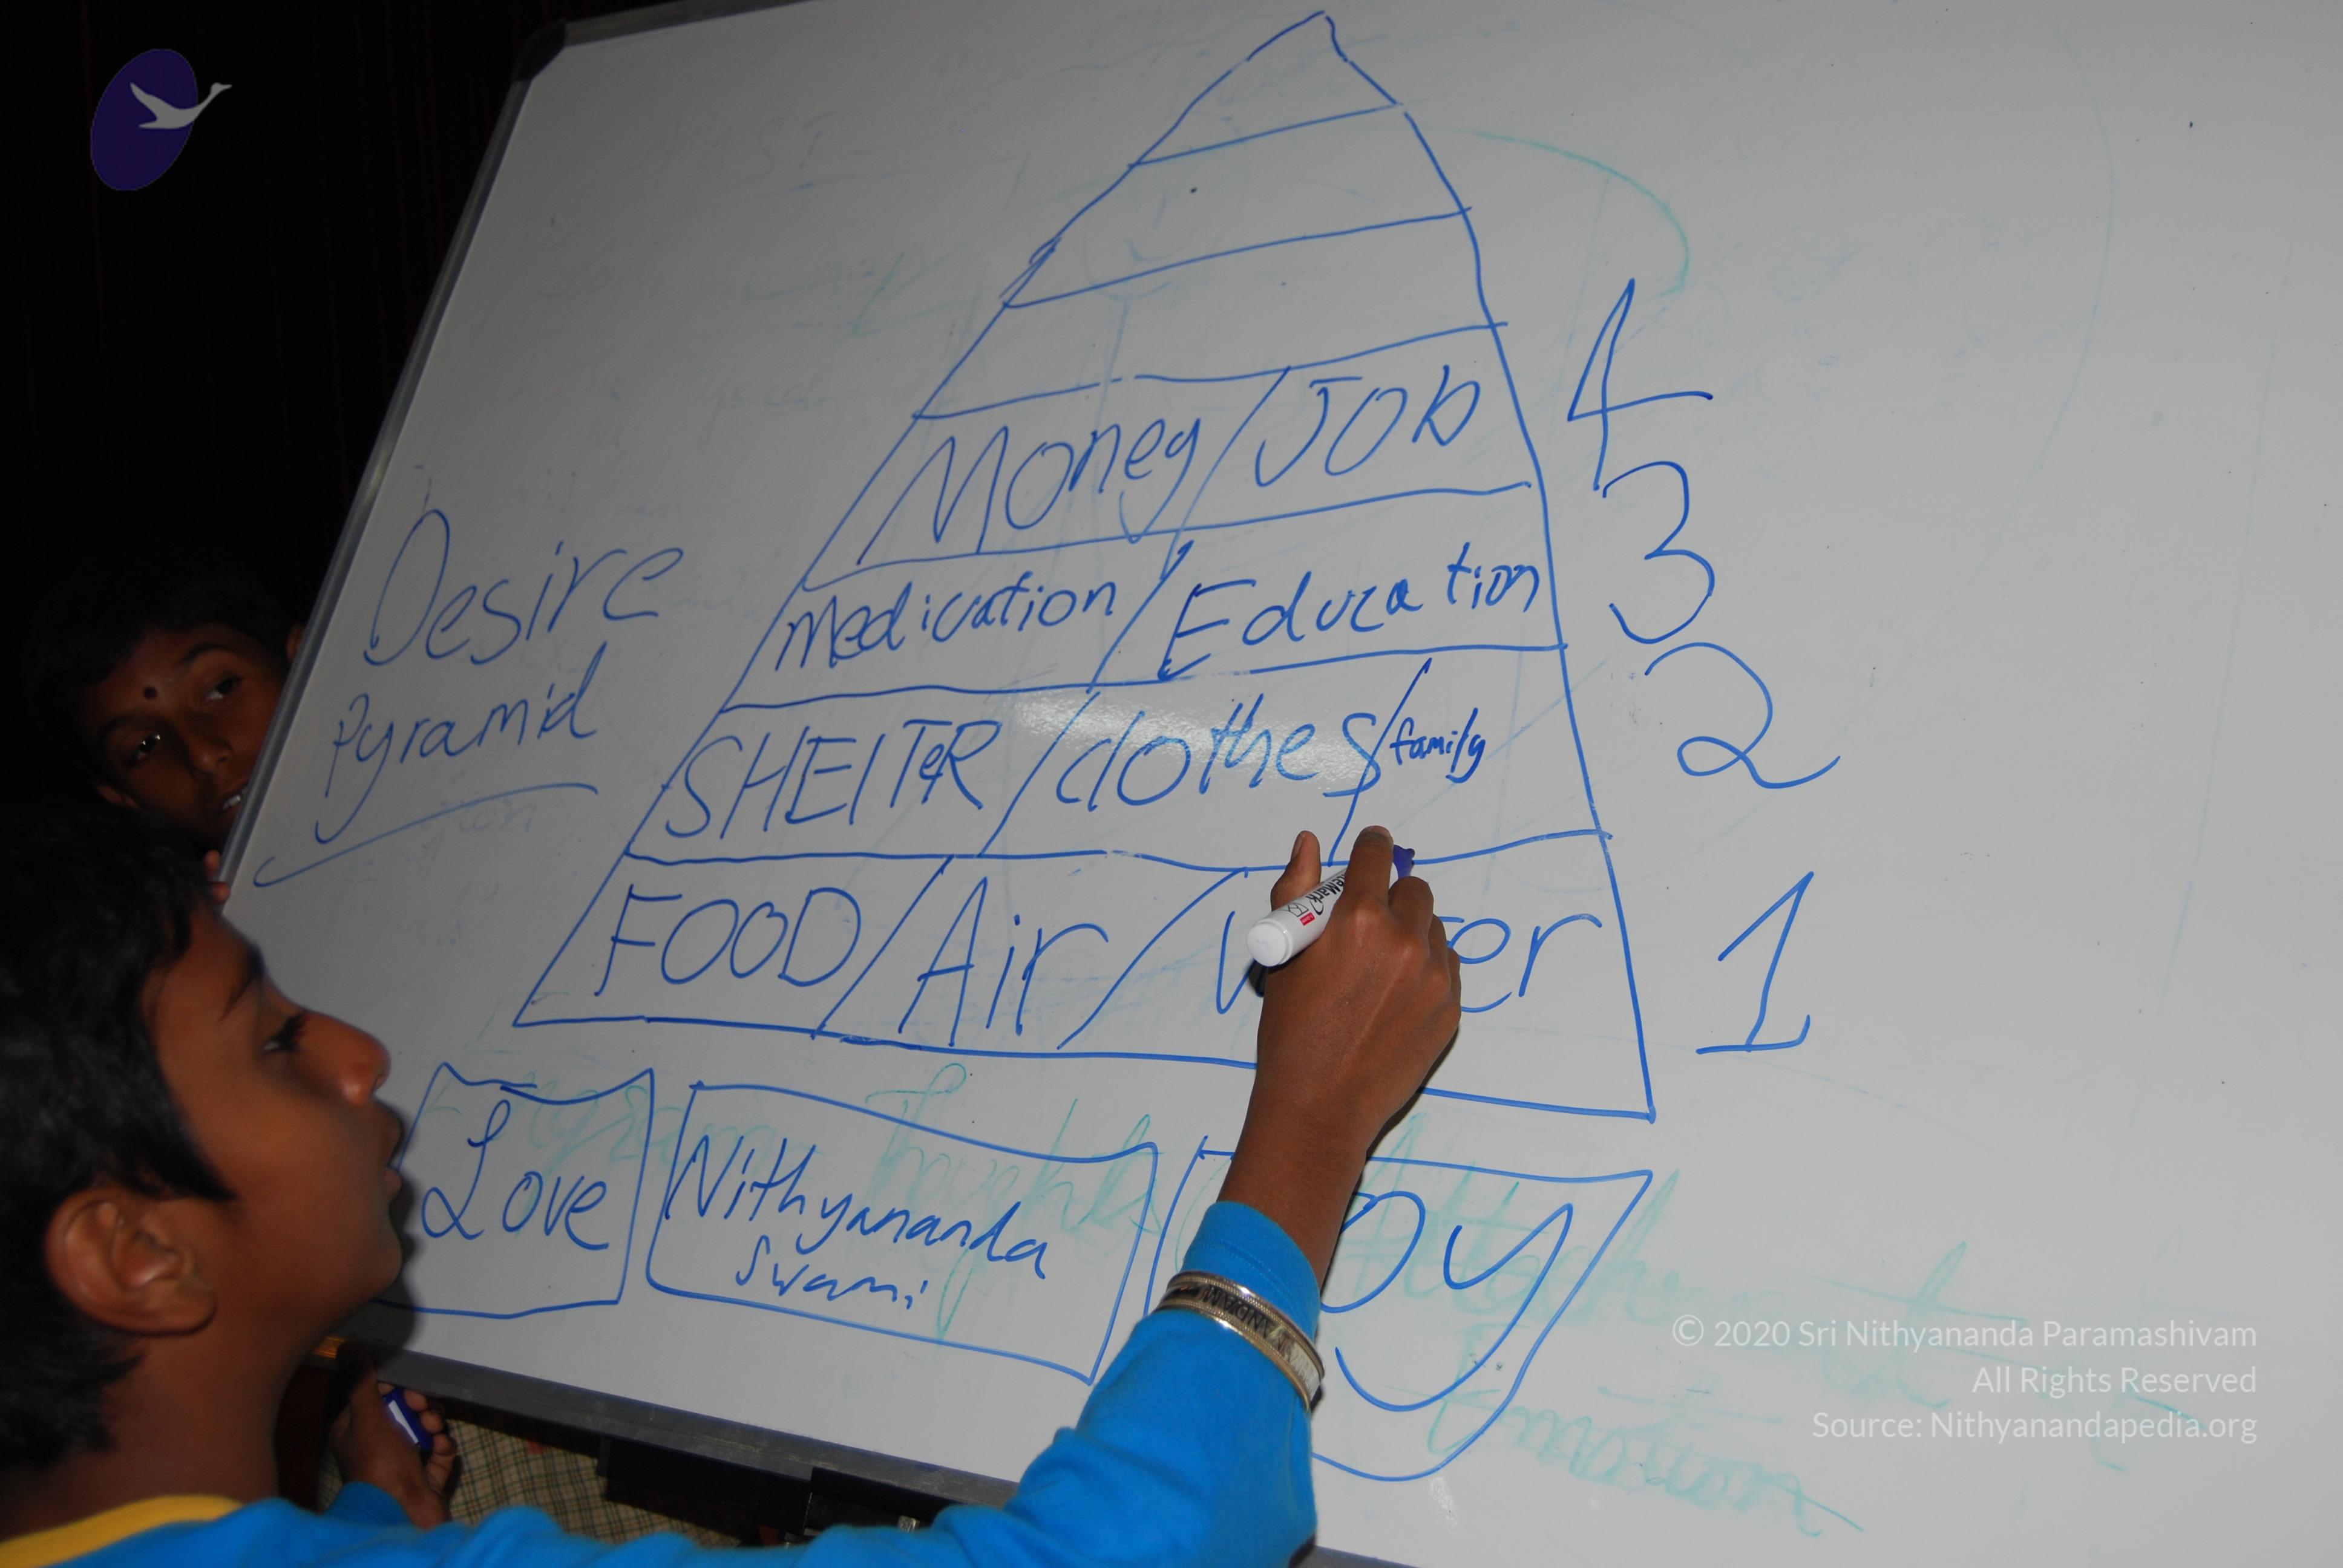 Money / JOb 4
Medication / Education 3
Desire
Pyramid
SHElTeR / clothes / family 2
FOOD / Air / er 1
Love
Nithyananda
Swami
oy
© 2020 Sri Nithyananda Paramashivam
All Rights Reserved
Source: Nithyanandapedia.org